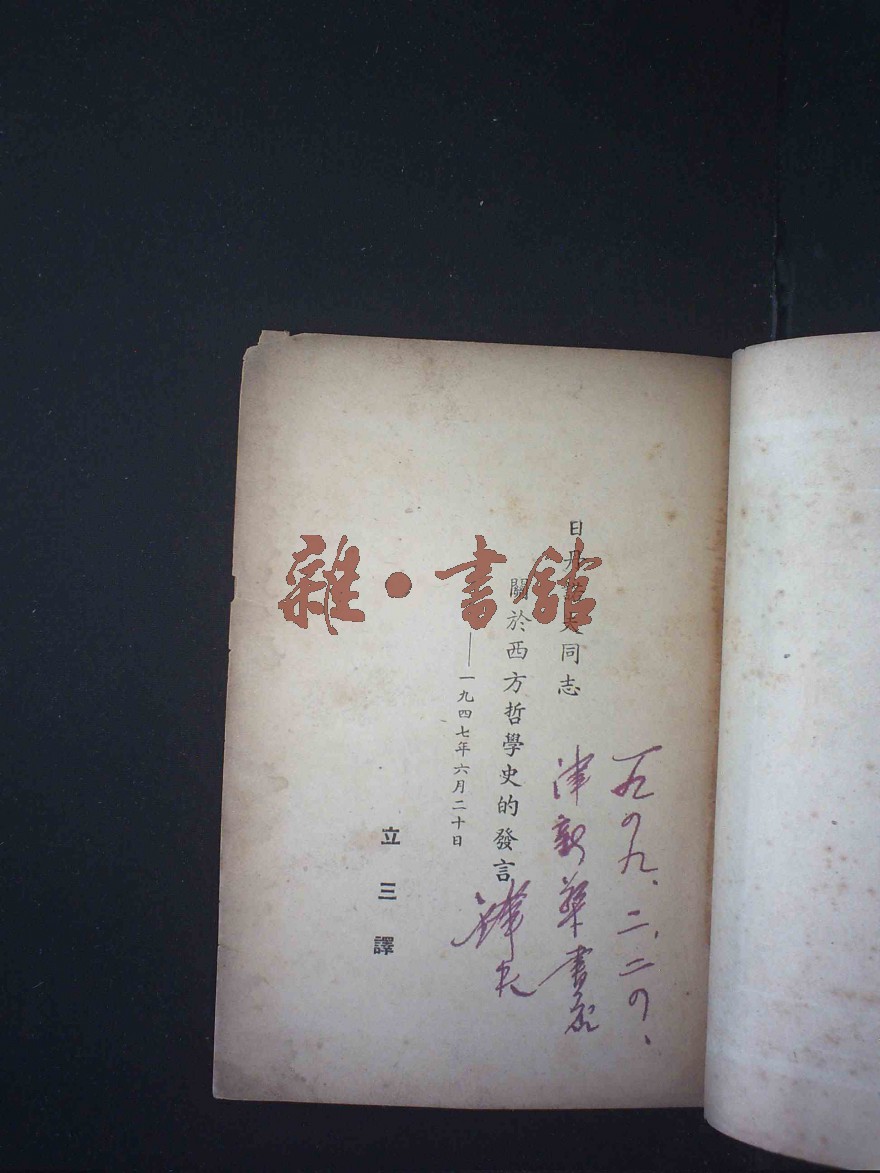 一九四九、二、二四、
津新華書店
日丹諾夫同志
關於西方哲學史的發言
——一九四七年六月二十日
立三譯
雜·書館